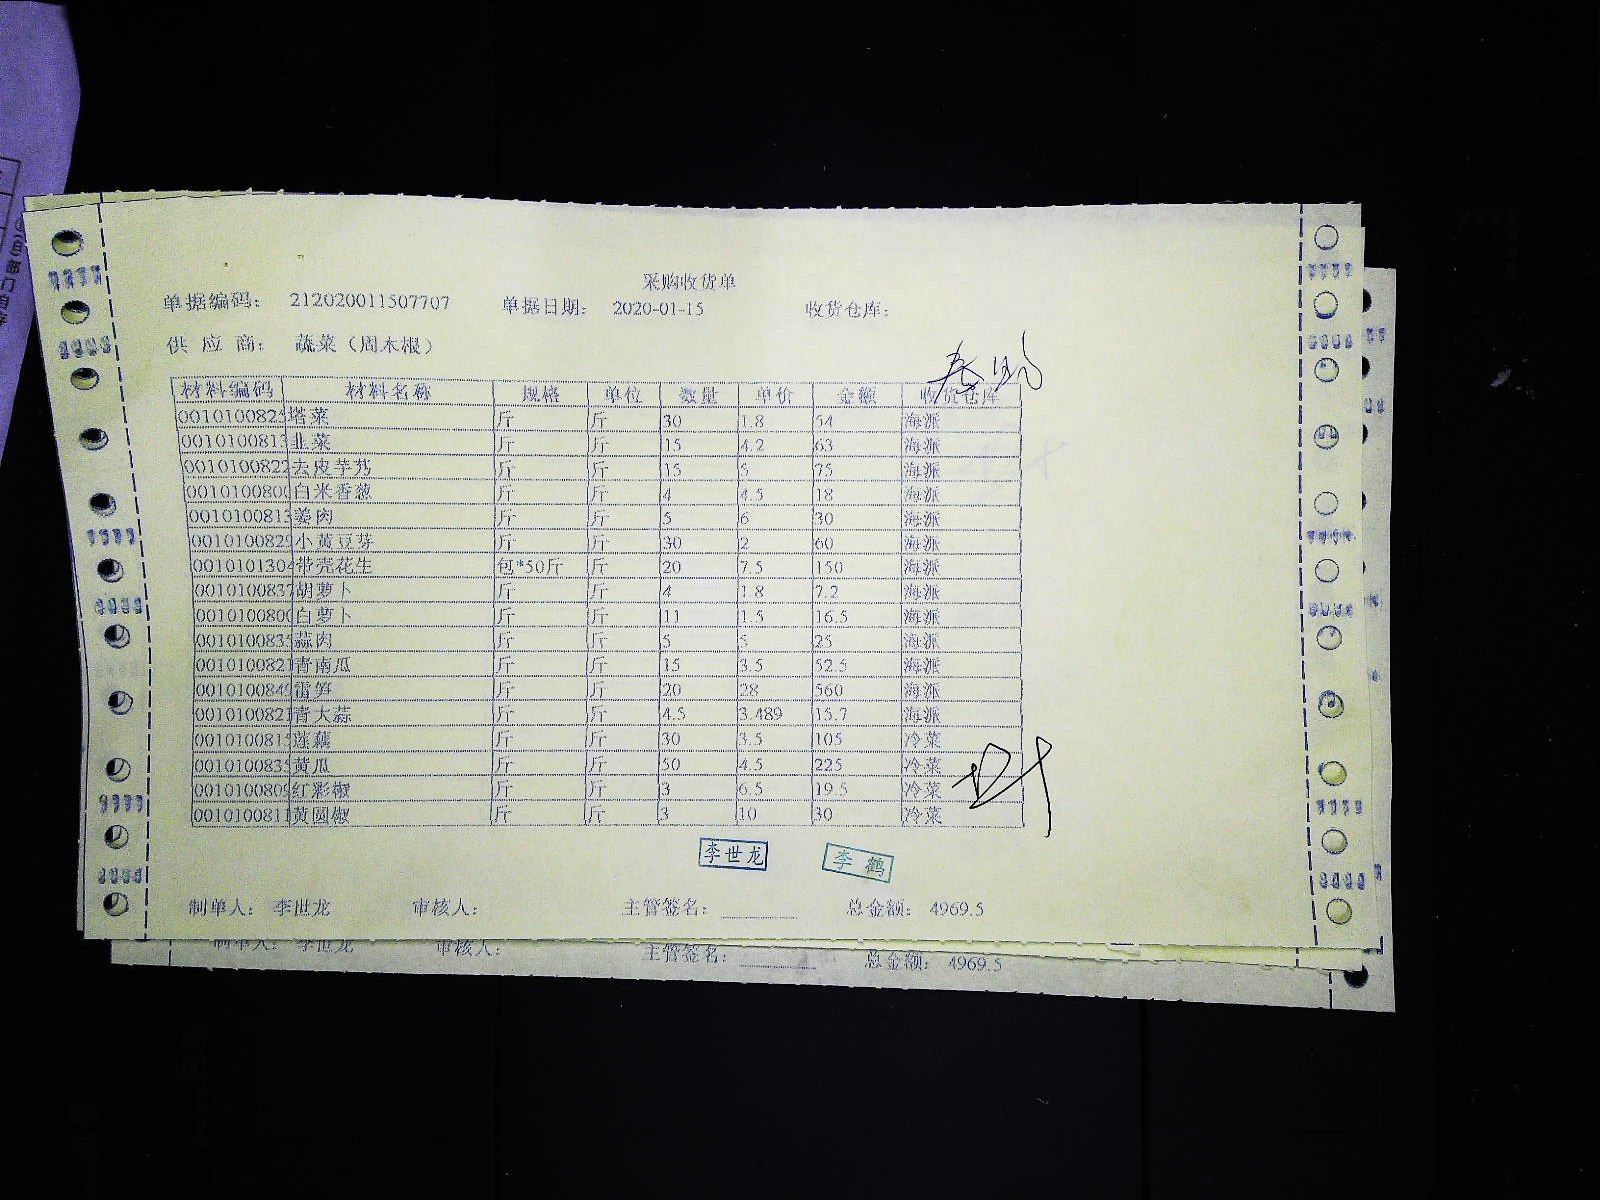 采购收货单
单据编码： 212020011507707 单据日期： 2020-01-15 收货仓库：
供 应 商： 蔬菜（周木根）
材料编码 材料名称 规格 单位 数量 单价 金额 收货仓库
0010100825 塔菜 斤 斤 30 1.8 54 海派
0010100813 韭菜 斤 斤 15 4.2 63 海派
0010100822 去皮芋艿 斤 斤 15 5 75 海派
0010100800 白米香葱 斤 斤 4 4.5 18 海派
0010100813 姜肉 斤 斤 5 6 30 海派
0010100829 小黄豆芽 斤 斤 30 2 60 海派
0010101304 带壳花生 包*50斤 斤 20 7.5 150 海派
0010100837 胡萝卜 斤 斤 4 1.8 7.2 海派
0010100800 白萝卜 斤 斤 11 1.5 16.5 海派
0010100835 蒜肉 斤 斤 5 5 25 海派
0010100821 青南瓜 斤 斤 15 3.5 52.5 海派
0010100849 雷笋 斤 斤 20 28 560 海派
0010100821 青大蒜 斤 斤 4.5 3.489 15.7 海派
0010100815 莲藕 斤 斤 30 3.5 105 冷菜
0010100835 黄瓜 斤 斤 50 4.5 225 冷菜
0010100809 红彩椒 斤 斤 3 6.5 19.5 冷菜
0010100811 黄圆椒 斤 斤 3 10 30 冷菜
李世龙 李鹤
制单人： 李世龙 审核人： 主管签名： 总金额： 4969.5
制单人： 李世龙 审核人： 主管签名： 总金额： 4969.5